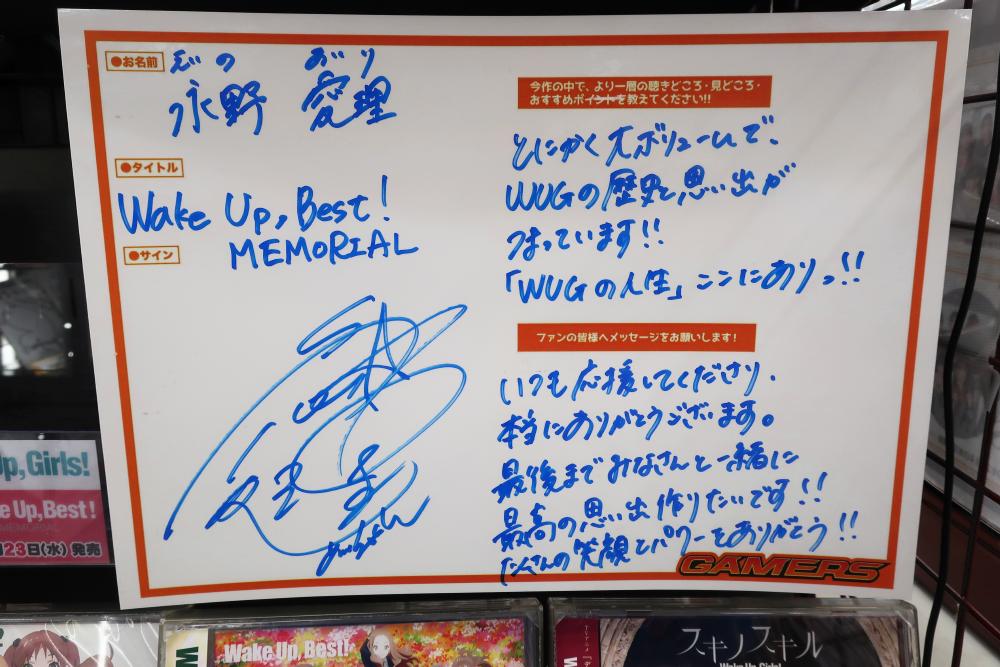 ●お名前
えの あいり
永野 愛理
●タイトル
Wake Up, Best!
MEMORIAL
●サイン
今作の中で、より一層の聴きどころ・見どころ・
おすすめポイントを教えてください!!
とにかく大ボリュームで、
WUGの歴史と思い出が
つまっています!!
「WUGの人生」ここにありっ!!
ファンの皆様へメッセージをお願いします!
いつも応援してくださり、
本当にありがとうございます。
最後までみなさんと一緒に
最高の思い出作りたいです!!
たくさんの笑顔とパワーをありがとう!!
GAMERS
Up, Girls!
e Up, Best!
MEMORIAL
23日(水)発売
Wake Up, Best!
スキノスキル
Wake Up, Girls!